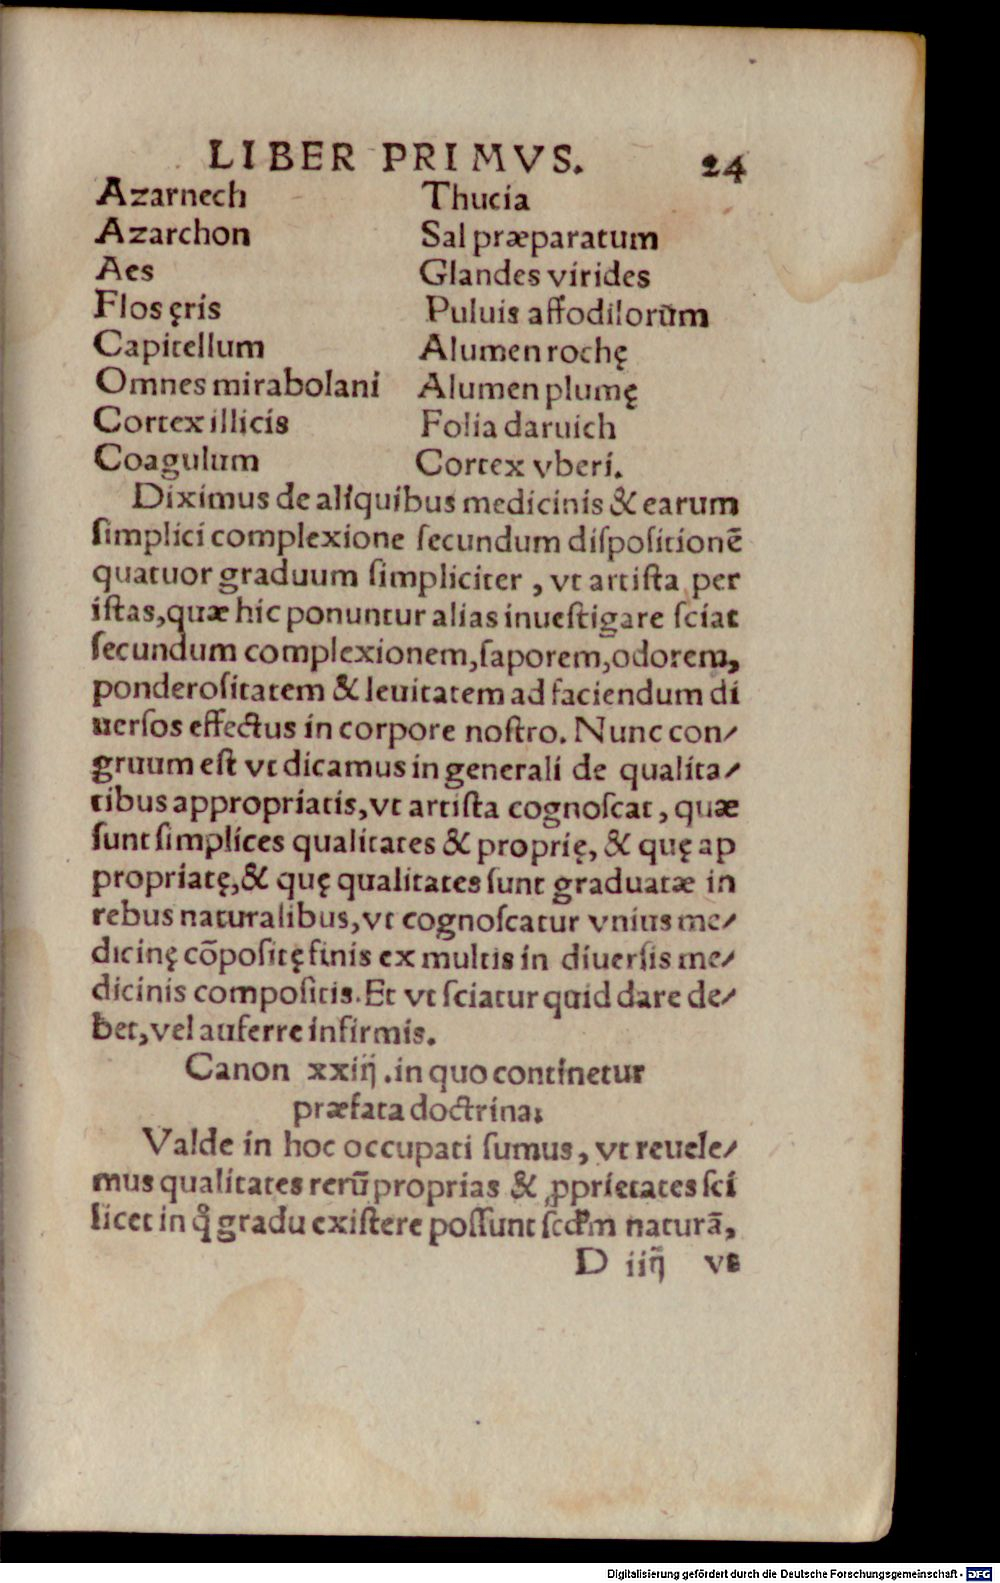 LIBER PRIMVS. 24
Azarnech
Azarchon
Aes
Flos ęris
Capitellum
Omnes mirabolani
Cortex illicis
Coagulum
Thucia
Sal præparatum
Glandes virides
Puluis affodilorūm
Alumen rochę
Alumen plumę
Folia daruich
Cortex vberi.
Diximus de aliquibus medicinis & earum
simplici complexione ſecundum diſpoſitionē
quatuor graduum ſimpliciter, vt artiſta per
iſtas, quæ hic ponuntur alias inueſtigare ſciat
ſecundum complexionem, ſaporem, odorem,
ponderoſitatem & leuitatem ad faciendum di
uerſos effectus in corpore noſtro. Nunc con⸗
gruum eſt vt dicamus in generali de qualita⸗
tibus appropriatis, vt artiſta cognoſcat, quæ
ſunt ſimplices qualitates & proprię, & quę ap
propriatę, & quę qualitates ſunt graduatæ in
rebus naturalibus, vt cognoſcatur vnius me⸗
dicinę cōpoſitę finis ex multis in diuerſis me⸗
dicinis compoſitis. Et vt ſciatur quid dare de⸗
bet, vel auferre infirmis.
Canon xxiij. in quo continetur
præfata doctrina.
Valde in hoc occupati ſumus, vt reuele⸗
mus qualitates rerū proprias & ꝓprietates ſci
licet in qͦ gradu exiſtere poſſunt ſcd̃m naturā,
D iiij vt
Digitalisierung gefördert durch die Deutsche Forschungsgemeinschaft - DFG